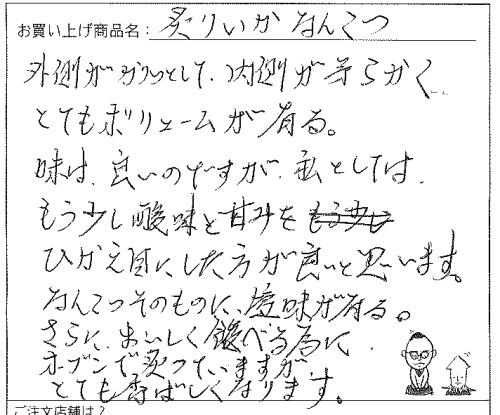 お買い上げ商品名：炙りいかなんこつ
外側がカリッとして、内側がやらかく
とてもボリュームが有る。
味は、良いのですが、私としては、
もう少し酸味と甘みをもう少し
ひかえ目にした方が良いと思います。
なんこつそのものに、塩味が有る。
さらに、おいしく食べる為に、
オーブンで炙っていますが、
とても香ばしくなります。
ご注文店舗は？